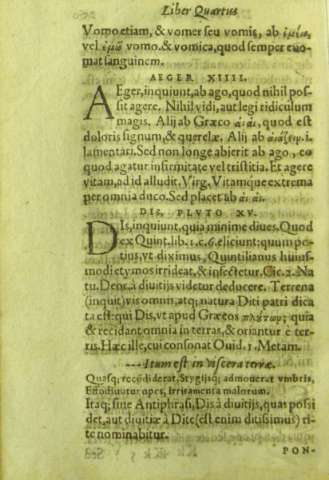 Liber Quartus
Vomo etiam, & vomer seu vomis, ab ἐμέω,
vel ἐμῶ vomo. & vomica, quod semper euo-
mat sanguinem.
AEGER XIIII.
AEger, inquiunt, ab ago, quod nihil pos-
sit agere. Nihil vidi, aut legi ridiculum
magis. Alij ab Græco αἲ αἲ, quod est
doloris signum, & querelæ. Alij ab αἰάζειν. i.
lamentari. Sed non longe abierit ab ago, eo
quod agatur infirmitate vel tristitia. Et agere
vitam, ad id alludit. Virg. Vitamque extrema
per omnia duco. Sed placet ab αἲ αἲ.
DIS, PLVTO XV.
DIs, inquiunt, quia minime diues. Quod
ex Quint. lib. 1. c. 6. eliciunt: quum po-
tius, vt diximus, Quintilianus huius-
modi etymos irrideat, & insectetur. Cic. 2. Na
tu. Deor. à diuitijs videtur deducere. Terrena
(inquit) vis omnis, atq; natura Diti patri dica
ta est: qui Dis, vt apud Græcos πλούτων: quia
& recidant omnia in terras, & oriantur è ter-
ris. Hæc ille, cui consonat Ouid. 1. Metam.
--- Itum est in viscera terræ.
Quasq; recõdiderat, Stygijsq; admouerat vmbris,
Effodiuntur opes, irritamenta malorum.
Itaq; siue Antiphrasi, Dis à diuitijs, quas possi
det, aut diuitiæ à Dite (est enim ditisimus) ri-
te nominabitur.
PON-